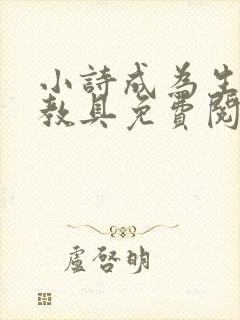 小詩成為生
教具免費閱
盧啓明